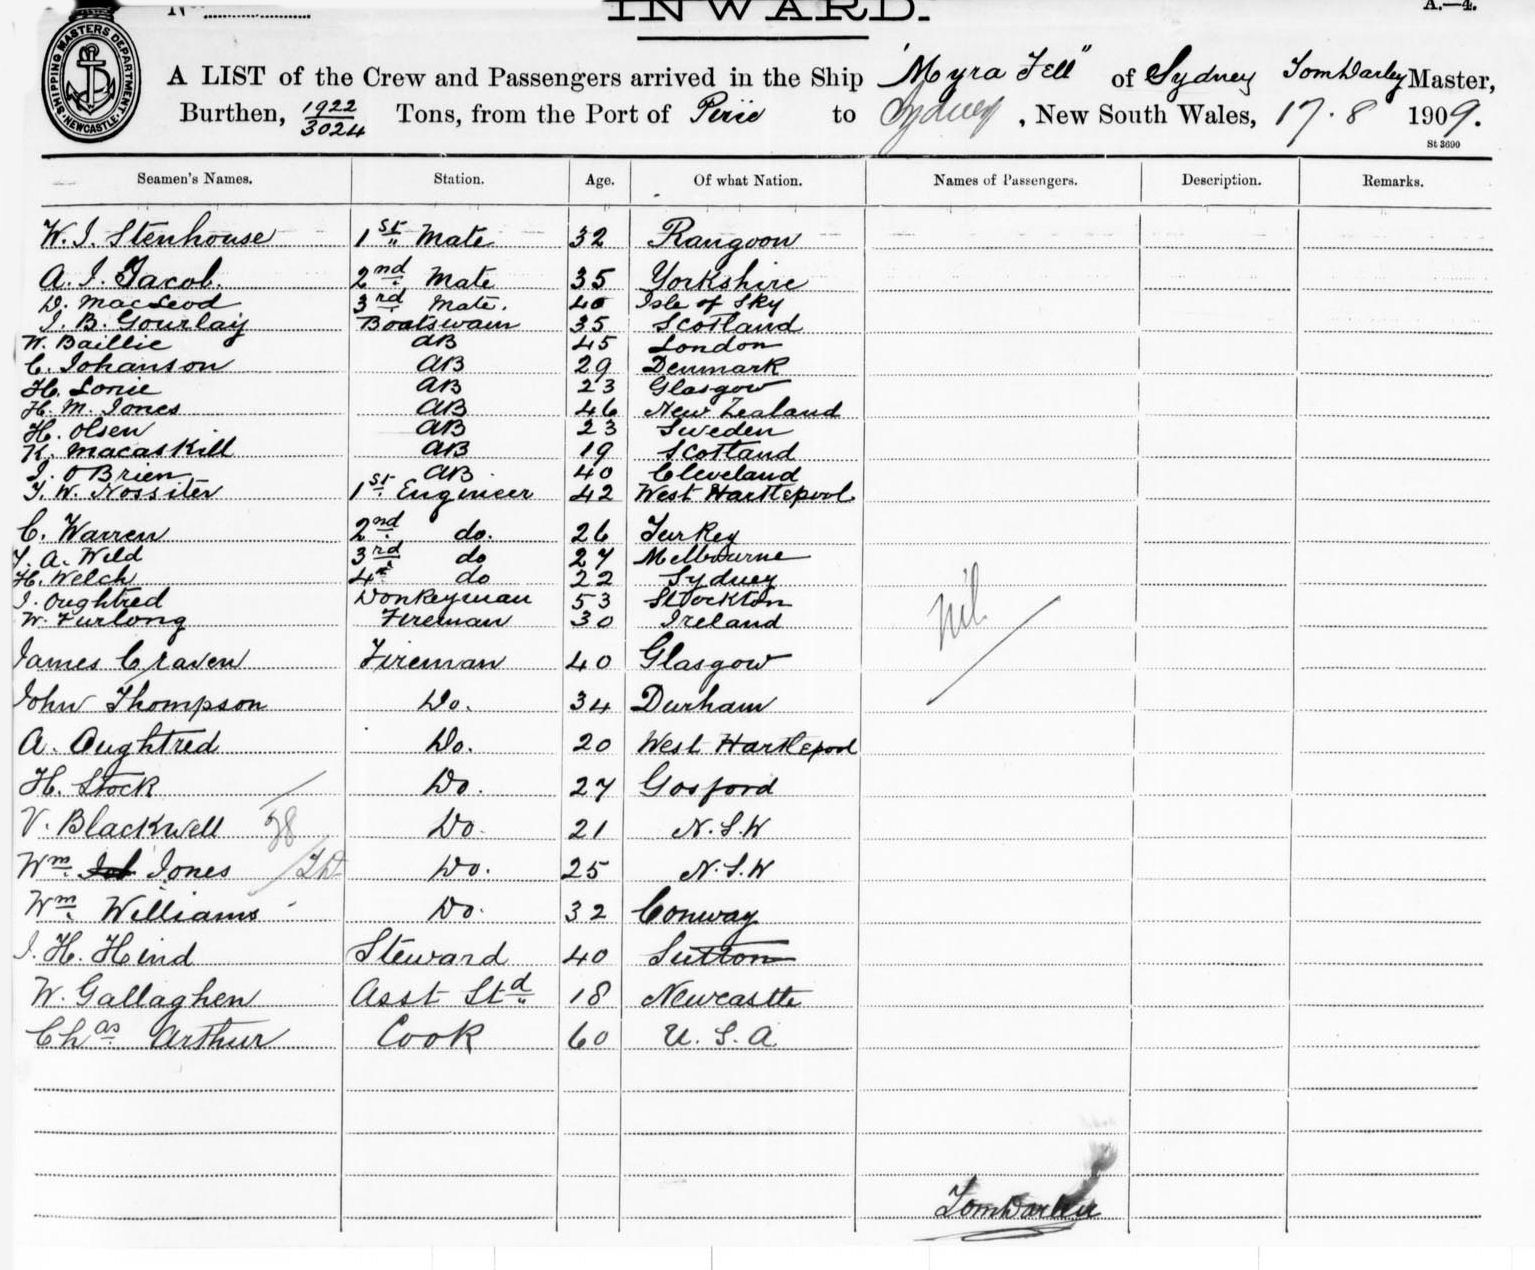 INWARD.
A.—4.
SHIPPING MASTERS DEPARTMENT. NEWCASTLE.
A LIST of the Crew and Passengers arrived in the Ship "Myra Fell" of Sydney Tom Darley Master,
Burthen, 1922/3024 Tons, from the Port of Pirie to Sydney, New South Wales, 17.8 1909.
St 3690
Seamen's Names. Station. Age. Of what Nation. Names of Passengers. Description. Remarks.
W. J. Stenhouse 1st Mate 32 Rangoon
A. J. Jacob. 2nd Mate 35 Yorkshire
D. MacLeod 3rd Mate. 40 Isle of Sky
J. B. Gourlay Boatswain 35 Scotland
W. Baillie AB 45 London
C. Johanson AB 29 Denmark
H. Lorie AB 23 Glasgow
H. M. Jones AB 46 New Zealand
H. Olsen AB 23 Sweden
K. Macaskill AB 19 Scotland
J. O'Brien AB 40 Cleveland
T. W. Nossiter 1st Engineer 42 West Hartlepool.
C. Warren 2nd do. 26 Turkey
T. A. Wild 3rd do 27 Melbourne
H. Welch 4th do 22 Sydney
J. Oughtred Donkeyman 53 Stockton
W. Furlong Fireman 30 Ireland
nil
James Craven Fireman 40 Glasgow
John Thompson Do. 34 Durham
A. Oughtred Do. 20 West Hartlepool
H. Stock Do. 27 Gosford
V. Blackwell Do. 21 N.S.W
Wm. Jones Do. 25 N.S.W
Wm. Williams Do. 32 Conway
J. H. Hind Steward 40 Sutton
W. Gallaghen Asst Std 18 Newcastle
Chas Arthur Cook 60 U.S.A
Tom Darley